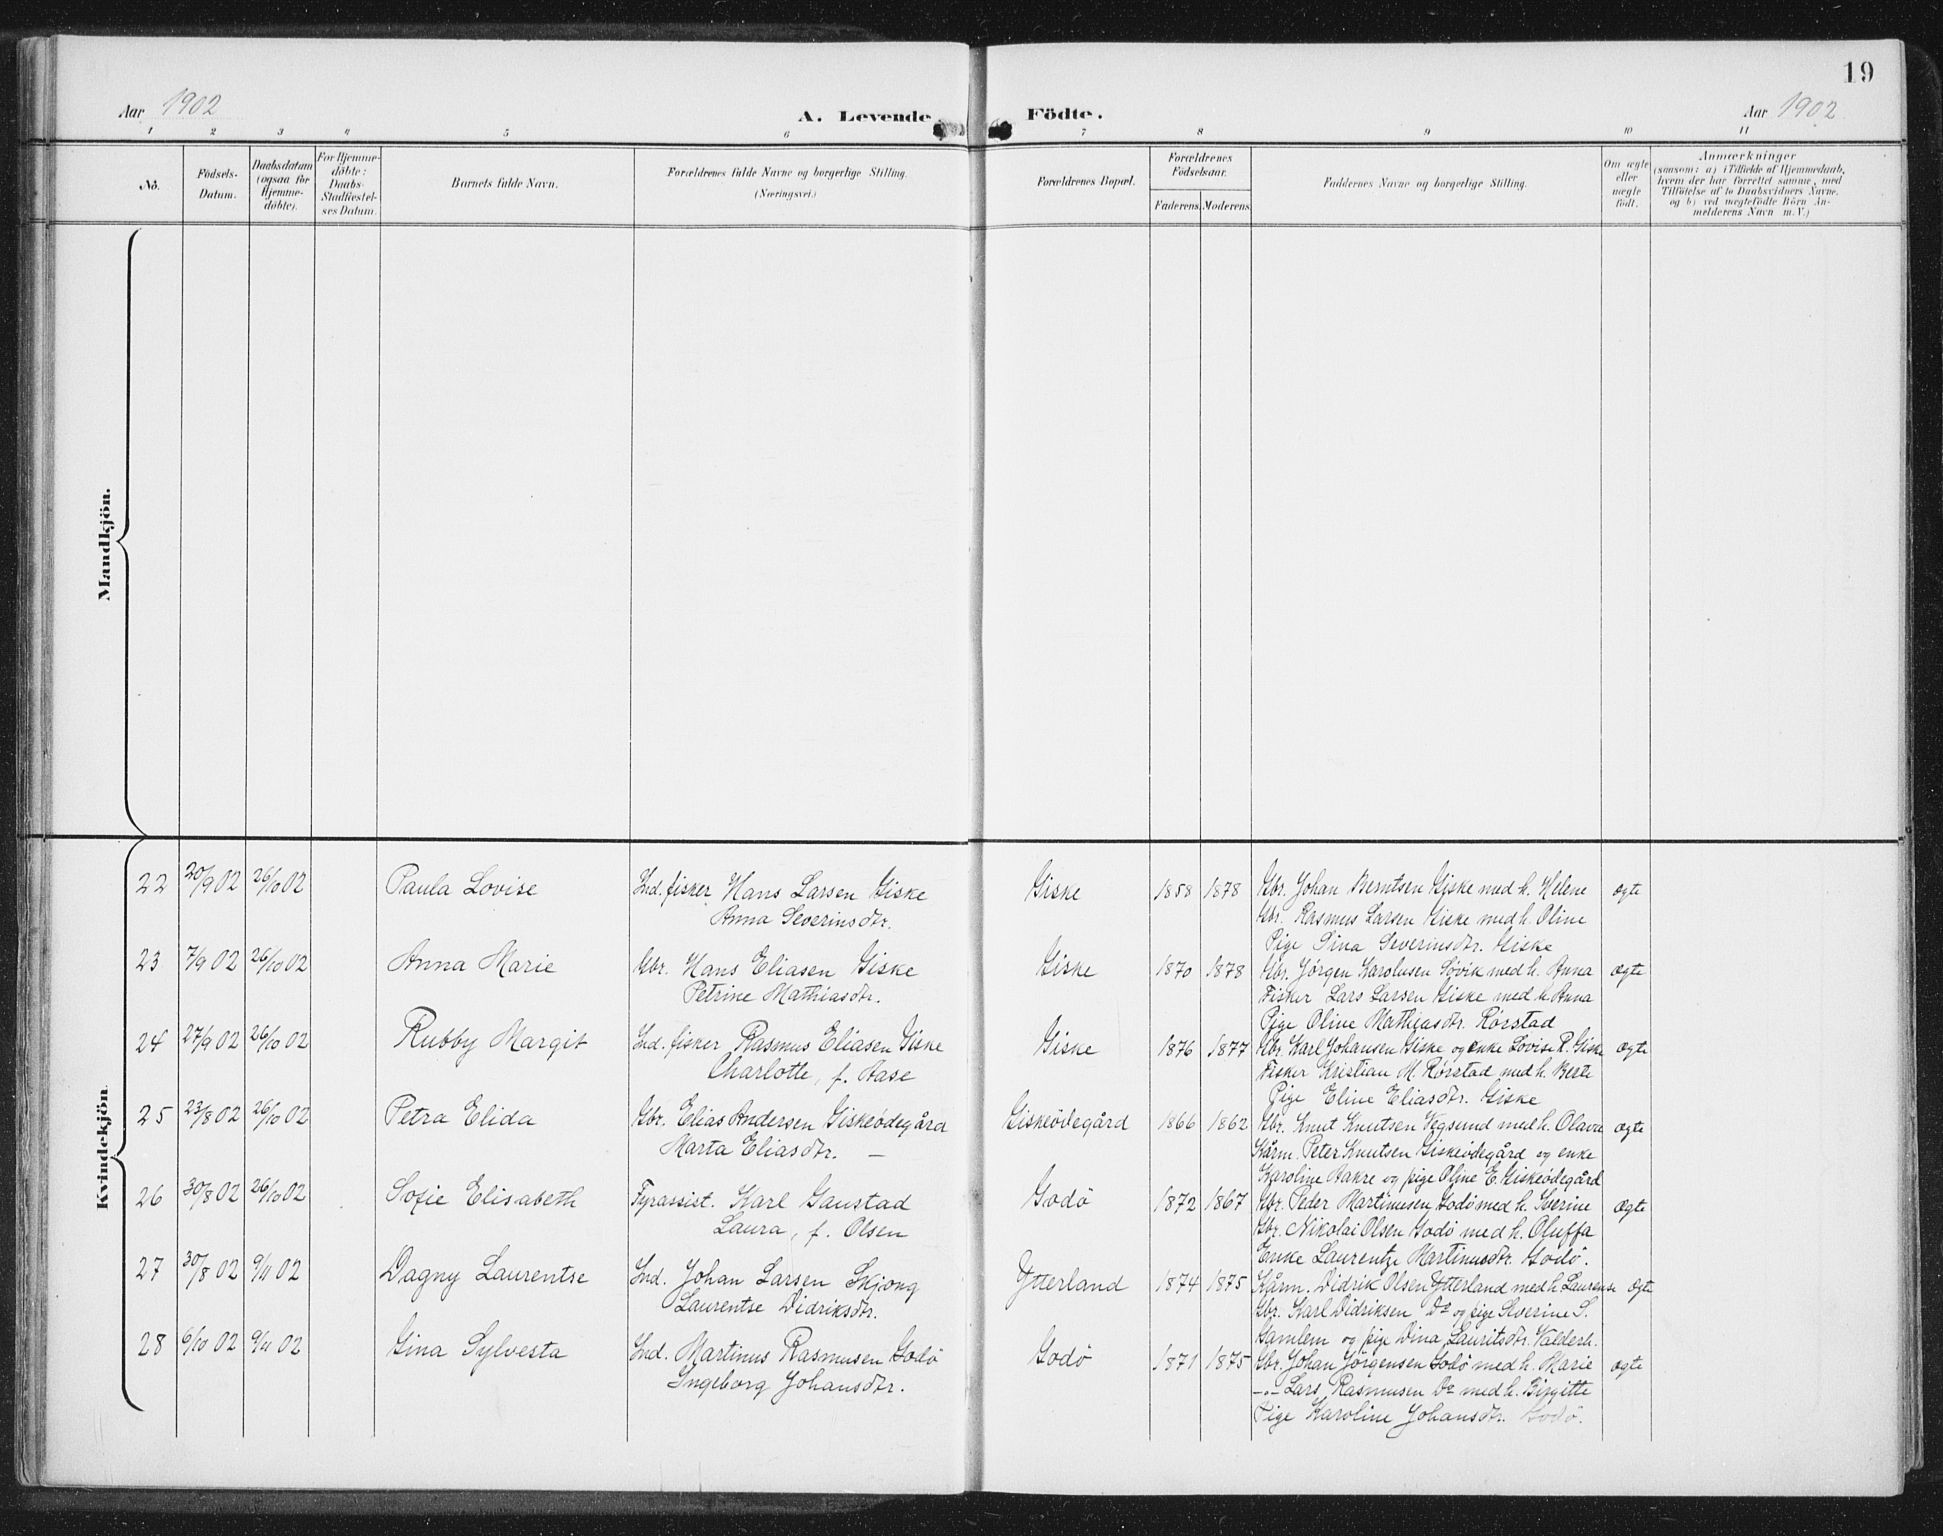 19
Aar 1902
A. Levende Födte.
Aar 1902
1 2 3 4 5 6 7 8 9 10 11
No.
Födsels-Datum.
Daabsdatum (ogsaa for Hjemme-döbte).
For Hjemme-döbte: Daabs-Stadfæstel-ses Datum.
Barnets fulde Navn.
Forældrenes fulde Navne og borgerlige Stilling.
(Næringsvei.)
Forældrenes Bopæl.
Forældrenes Födselsaar.
Faderens. Moderens.
Faddernes Navne og borgerlige Stilling.
Om ægte eller uægte födt.
Anmærkninger
(saasom: a) i Tilfælde af Hjemmedaab,
hvem der har forrettet samme, med
Tilföielse af to Daabsvidners Navne,
og b) ved uægtefödte Börn An-
melderens Navn m. V.)
Mandkjön.
Kvindekjön.
22 20/9 02 26/10 02 Paula Lovise Ind. fisker Hans Larsen Giske Giske 1858 1878 Gbr. Johan Berntsen Giske med h. Helene ægte
Anna Severinsdtr. Gbr. Rasmus Larsen Giske med h. Oline
Pige Sina Severinsdtr. Giske
23 7/9 02 26/10 02 Anna Marie Gbr. Hans Eliasen Giske Giske 1870 1878 Gbr. Jørgen Karolusen Søvik med h. Anna ægte
Petrine Mathiasdtr. Fisker Lars Larsen Giske med h. Anna
Pige Oline Mathiasdtr. Rørstad
24 27/9 02 26/10 02 Rubby Margit Ind. fisker Rasmus Eliasen Giske Giske 1876 1877 Gbr. Karl Johansen Giske og enke Lovise R. Giske ægte
Charlotte, f. Aase Fisker Kristian M. Rørstad med h. Berte
Pige Eline Eliasdtr. Giske
25 23/8 02 26/10 02 Petra Elida Gbr. Elias Andersen Giskeødegård Giskeødegård 1866 1862 Gbr. Knut Knutsen Vegsund med h. Olava ægte
Marta Eliasdtr. — Kårm. Peter Knutsen Giskeødegård og enke
Karoline Aakre og pige Oline E. Giskeødegård
26 30/8 02 26/10 02 Sofie Elisabeth Fyrassist. Karl Gaustad Godø 1872 1867 Gbr. Peder Martinusen Godø med h. Sverine ægte
Laura, f. Olsen Gbr. Nikolai Olsen Godø med h. Oluffa
Enke Laurentze Martinusdtr. Godø.
27 30/8 02 9/11 02 Dagny Laurentse Ind. Johan Larsen Skjong Ytterland 1874 1875 Kårm. Didrik Olsen Ytterland med h. Laurense ægte
Laurentse Didriksdtr. Gbr. Karl Didriksen Do og pige Severine S.
Gamlem og pige Dina Lauritsdtr. Valderh.
28 6/10 02 9/11 02 Gina Sylvesta Ind. Martinus Rasmusen Godø Godø 1871 1875 Gbr. Johan Jørgensen Godø med h. Marie ægte
Ingeborg Johansdtr. —„— Lars Rasmusen Do med h. Birgitte
Pige Karoline Johansdtr. Godø.